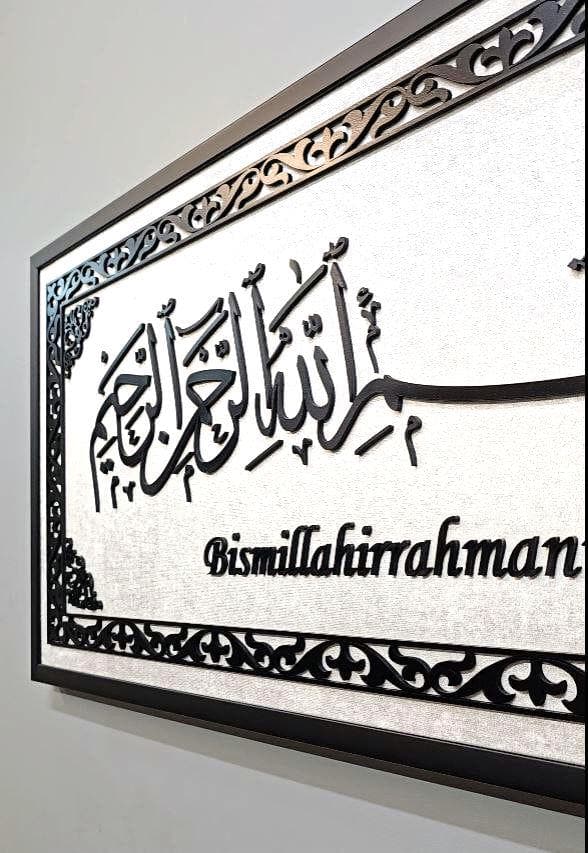 الله الرحمن الرحيم
Bismillahirrahman